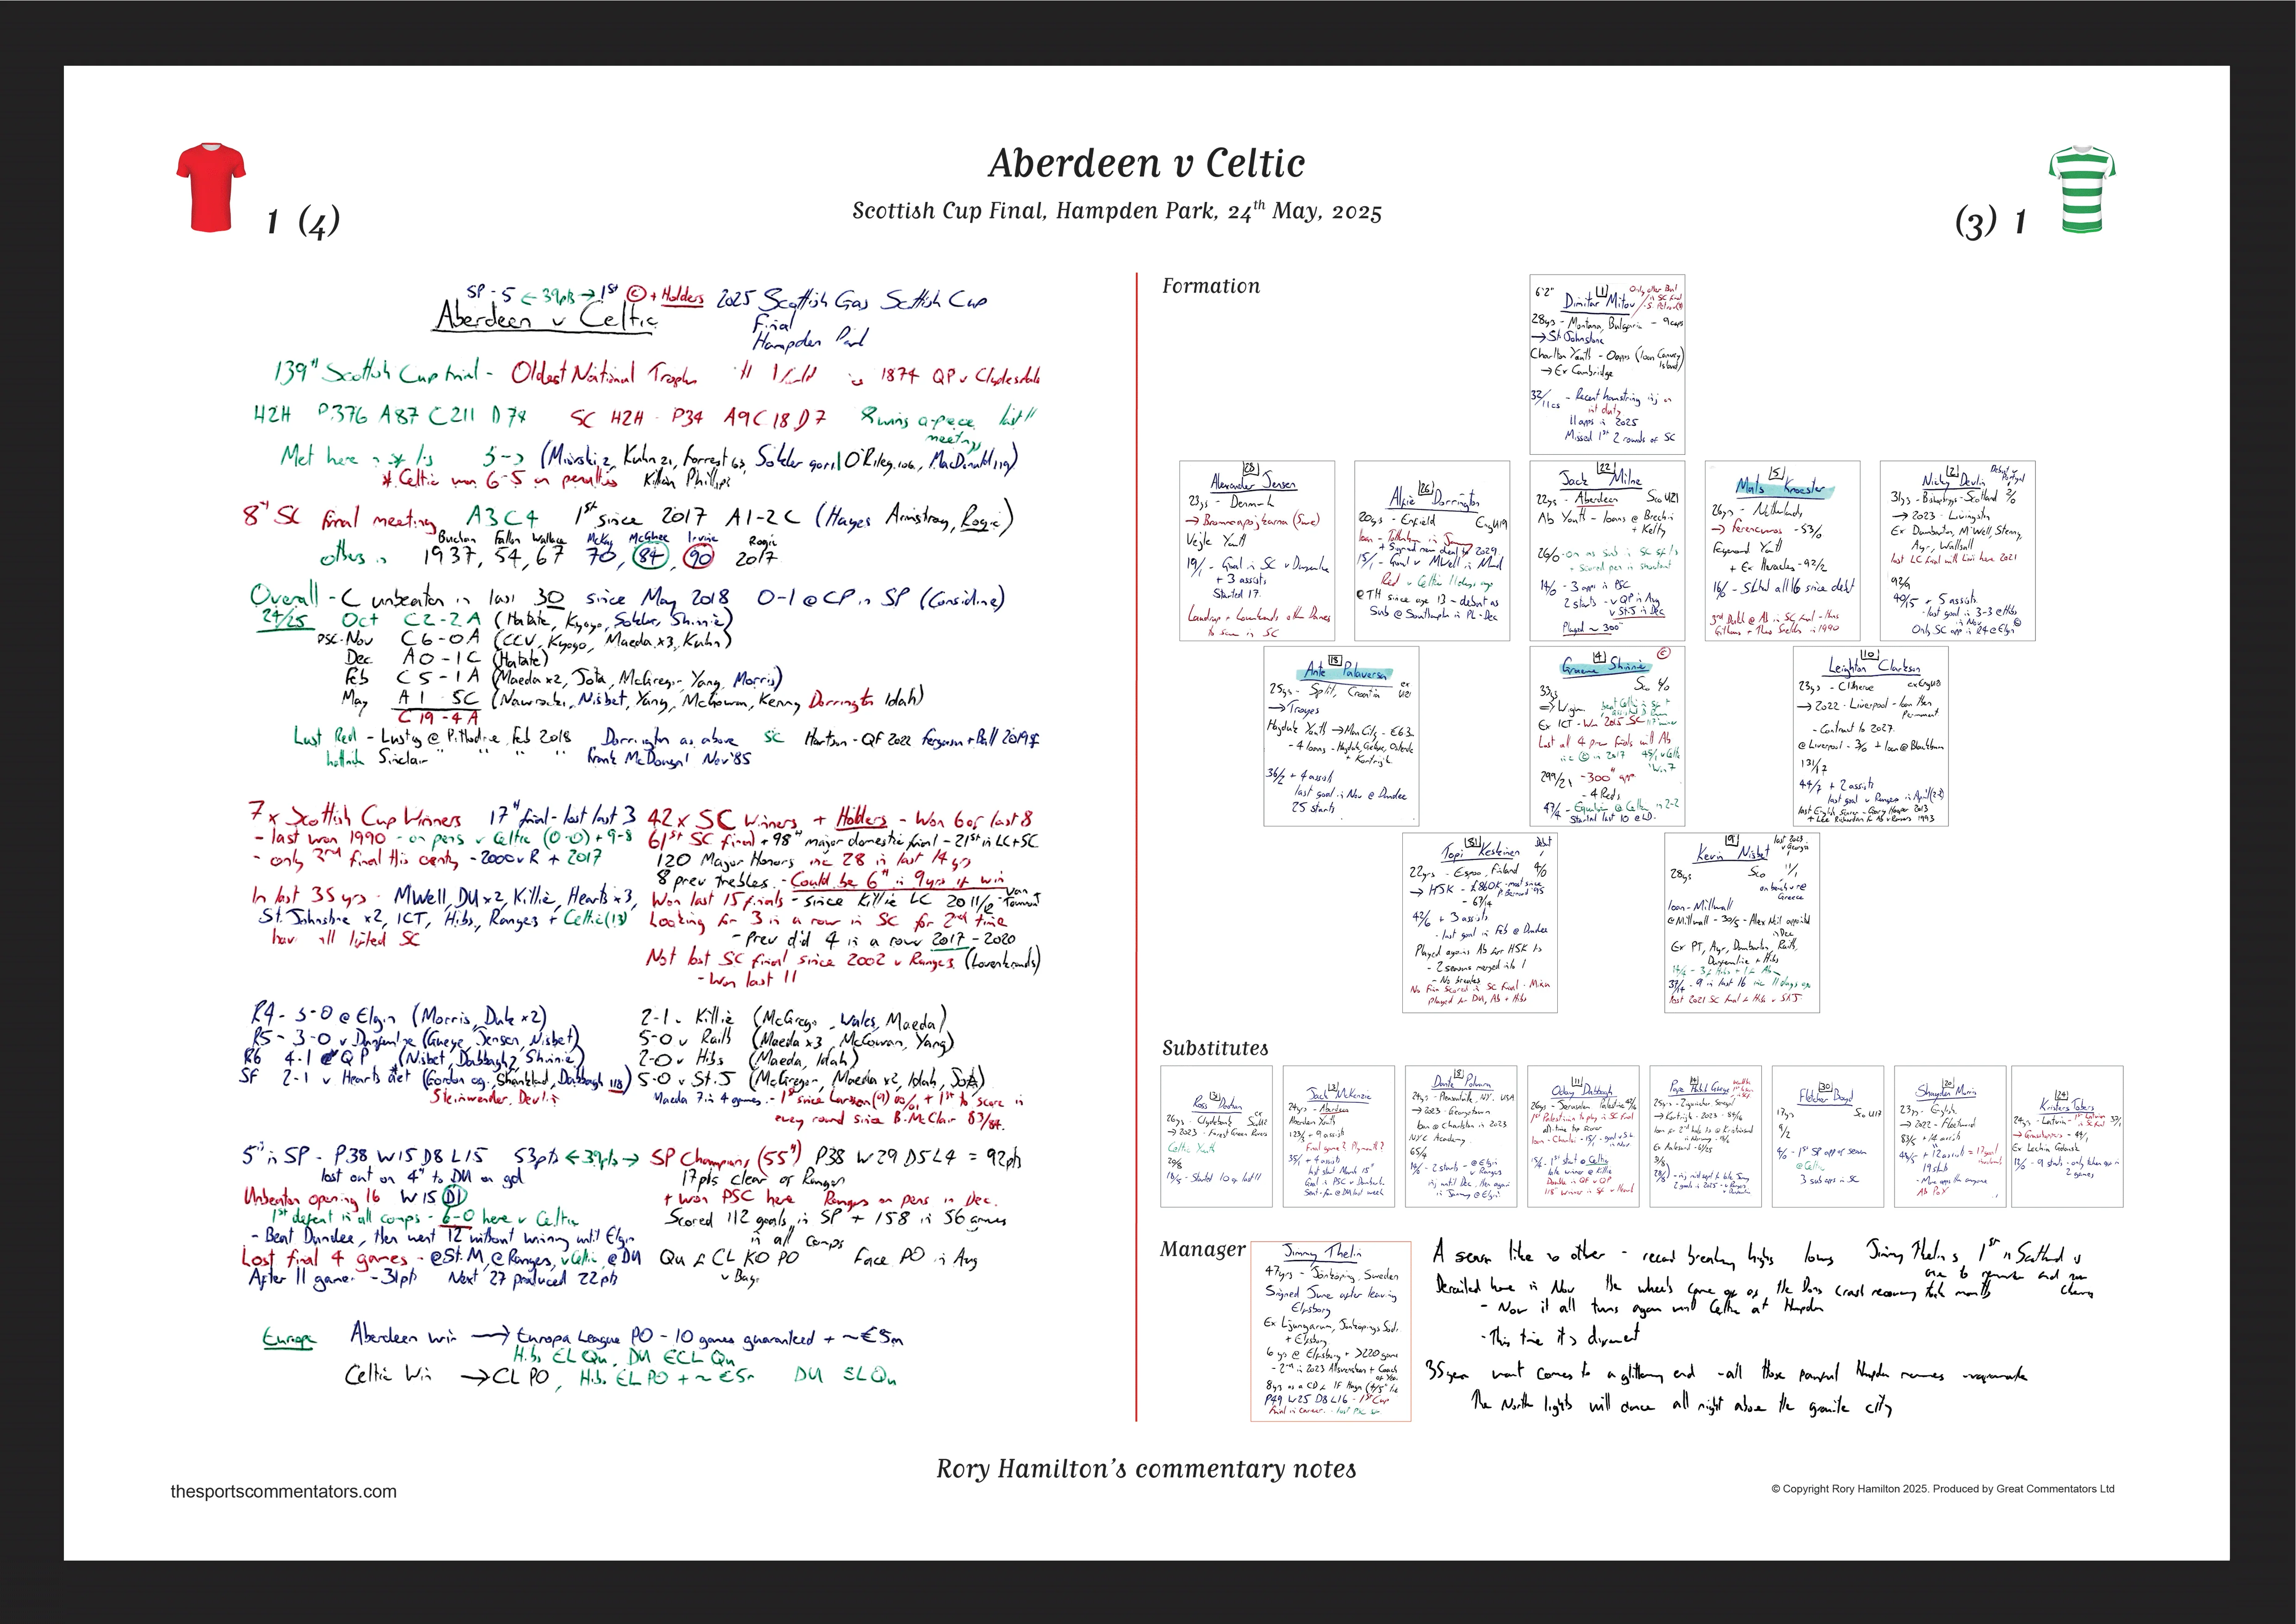 Aberdeen v Celtic
Scottish Cup Final, Hampden Park, 24th May, 2025
1 (4)
(3) 1
SP - 5 ← 39pts → 1st © + Holders 2025 Scottish Gas Scottish Cup
Aberdeen v Celtic
Final
Hampden Park
139th Scottish Cup Final - Oldest National Trophy 1874 QP v Clydesdale
H2H P376 A87 C211 D78 SC H2H - P34 A9 C18 D7 8 wins a-piece last 11
meetings
Met here in 5-5 (Miovski 2, Kuhn 21, Forrest 63, Sokler 90+1 O'Riley 106, MacDonald 119)
* Celtic won 6-5 on penalties Killian Phillips
8th SC final meeting A3 C4 1st since 2017 A1-2C (Hayes Armstrong, Rogic)
Buchan Fallon Wallace McKay McGhee Irvine Rogic
others in 1937, 54, 67 70, 84, 90 2017
Overall - C unbeaten in last 30 since May 2018 0-1 @ CP in SP (Considine)
24/25 Oct C2-2A (Hatate, Kyogo, Sokler, Shinnie)
PSC-Nov C6-0A (CCV, Kyogo, Maeda x3, Kuhn)
Dec A0-1C (Hatate)
Feb C5-1A (Maeda x2, Jota, McGregor Yang, Morris)
May A1 5C (Nawrocki, Nisbet, Yang, McCowan, Kenny Dorrington Idah)
C19-4A
Last Red - Lustig @ Pittodrie Feb 2018 Dorrington as above SC Hartson - QF 2022 Ferguson + Ball 2019 SF
hattrick Sinclair " " " Frank McDougal Nov '85
7 x Scottish Cup Winners 17th final - lost last 3
- last won 1990 - on pens v Celtic (0-0) + 9-8
- only 3rd final this century - 2000 v R + 2017
In last 35 yrs - MWell, DU x2, Killie, Hearts x3,
St. Johnstone x2, ICT, Hibs, Rangers + Celtic (13)
have all lifted SC
42 x SC Winners + Holders - Won 6 of last 8
61st SC final + 98th major domestic final - 21st in LC+SC
120 Major Honors inc 28 in last 14 yrs
8 prev trebles - Could be 6th in 9yrs if win
Won last 15 finals - since Killie LC 2011/12 - Van Tornhout
Looking for 3 in a row in SC for 2nd time
- Prev did 4 in a row 2017-2020
Not lost SC final since 2002 v Rangers (Lovenkrands)
- Won last 11
R4 - 3-0 @ Elgin (Morris, Duk x2)
R5 - 3-0 v Dunfermline (Gueye, Jensen, Nisbet)
R6 4-1 v QP (Nisbet, Dabbagh 2, Shinnie)
SF 2-1 v Hearts aet (Gordon og, Shankland, Dabbagh 118)
Steinwender, Devlin
2-1 v Killie (McGregor, Wales, Maeda)
5-0 v Raith (Maeda x3, McCowan, Yang)
2-0 v Hibs (Maeda, Idah)
5-0 v St.J (McGregor, Maeda x2, Idah, Jota)
Maeda 7 in 4 games - 1st since Larsson (9) 00/01 + 1st to score in
every round since B. McClair 83/84
5th in SP - P38 W15 D8 L15 53pts ← 39pts → SP Champions (55th) P38 W29 D5 L4 = 92pts
lost out on 4th to DU on gd
17pts clear of Rangers
Unbeaten opening 16 W15 D1
+ won PSC here Rangers on pens in Dec.
1st defeat in all comps - 6-0 here v Celtic
Scored 112 goals in SP + 158 in 56 games
in all comps
- Beat Dundee, then went 12 without winning until Elgin
Lost final 4 games - @St.M, @Rangers, v Celtic, @DU
After 11 games - 31pts Next 27 produced 22pts
Qu for CL KO PO Face PO in Aug
v Bayern
Europe Aberdeen win → Europa League PO - 10 games guaranteed + ~€5m
Hibs EL Qu, DU ECL Qu
Celtic Win → CL PO, Hibs EL PO + ~€5m DU EL Qu
Formation
[1]
6'2" Dimitar Mitov
28yrs - Montana, Bulgaria - 9caps
→ St Johnstone
Charlton Youth - 0apps (loan Canvey Island)
→ Ex Cambridge
32/11cs - Recent hamstring inj on
int duty
11 apps in 2025
Missed 1st 2 rounds of SC
[28]
Alexander Jensen
23yrs - Denmark
→ Brommapojkarna (Swe)
Vejle Youth
19/1 - Goal in SC v Dunfermline
+ 3 assists
Started 17
Laudrup + Lovenkrands other Danes
to score in SC
[26]
Alfie Dorrington
20yrs - Enfield Eng U19
loan - Tottenham in January
+ Signed new deal to 2029
15/1 - Goal v MWell in March
Red v Celtic 11 days ago
@TH since age 13 - debut as
Sub @ Southampton in PL - Dec
[22]
Jack Milne
22yrs - Aberdeen Sco U21
Ab Youth - loans @ Brechin
+ Kelty
26/0 - on as sub in SC sf
+ scored pen in shootout
14/0 - 3 apps in PSC
2 starts - v QP in Aug
v St.J in Dec
Played ~ 300
[5]
Mats Knoester
26yrs - Netherlands
→ Ferencvaros - 53/0
Feyenoord Youth
+ Ex Heracles - 92/2
16/0 - Started all 16 since debut
3rd Dutch @ Ab in SC final - Hans
Gillhaus + Theo Snelders in 1990
[2]
Nicky Devlin
31yrs - Bishopbriggs - Scotland 2/0
→ 2023 - Livingston
Ex Dumbarton, M'Well, Stenny,
Ayr, Walsall
lost LC final with Livi here 2021
92/9
40/5 + 5 assists
- last goal in 3-3 @ Hibs
in Nov
Only SC app in R4 @ Elgin
[18]
Ante Palaversa
25yrs - Split, Croatia ex U21
→ Troyes
Hajduk Youth → Man City - £6.3m
- 4 loans - Hajduk, Getafe, Oostende
+ Kortrijk
36/2 + 4 assists
last goal in Nov @ Dundee
25 starts
[4]
Graeme Shinnie ©
Sco 6/0
33yrs
→ Wigan
Ex ICT - Won 2015 SC
Lost all 4 prev finals with Ab
inc © in 2017
299/21 - 300th app
- 4 Reds
47/4 - Equaliser @ Celtic in 2-2
Started last 10 @ LB
[10]
Leighton Clarkson
23yrs - Clitheroe ex Eng U18
→ 2022 - Liverpool - loan then
Permanent
- Contract to 2027
@Liverpool - 3/0 + loan @ Blackburn
131/17
44/3 + 2 assists
last goal v Rangers in April (2-2)
last English Scorer - Garry Hooper 2013
+ Lee Richardson for Ab v Rangers 1993
[81]
Topi Keskinen
22yrs - Espoo, Finland 4/0
→ HJK - £860K - most since
P. Bernard '95
- 67/14
42/6 + 3 assists
- last goal in Feb @ Dundee
Played against Ab for HJK
- 2 seasons merged into 1
- No breaks
No Finn Scored in SC final - Mixu
played for DU, Ab + Hibs
[9]
Kevin Nisbet
28yrs Sco 11/1
on bench v Greece
loan - Millwall
@Millwall - 30/5 - Alex Neil appointed
in Dec
Ex PT, Ayr, Dumbarton, Raith,
Dunfermline + Hibs
37/14 - 9 in last 16 inc 11 days ago
lost 2021 SC final for Hibs v St.J
Substitutes
[31]
Ross Doohan
26yrs - Clydebank
→ 2023 - Forest Green Rovers
Celtic Youth
20/8
18/5 - Started 10 of last 11
[3]
Jack McKenzie
24yrs - Aberdeen
Aberdeen Youth
123/1 + 9 assists
Final game? Plymouth?
35/1 + 4 assists
last start March 15th
Goal in PSC v Dumbarton
Sent-for @ DU last week
[8]
Dante Polvara
24yrs - Pleasantville, NY. USA
→ 2023 - Georgetown
loan @ Charleston in 2023
NYC Academy
65/4
14/0 - 2 starts - @ Elgin
v Rangers
inj until Dec, then again
in January @ Elgin
[11]
Oday Dabbagh
26yrs - Jerusalem Palestine
1st Palestinian to play in SC Final
all-time top scorer
loan - Charleroi
1st start @ Celtic
late winner @ Killie
Double in QF v QP
115 winner in SF v Hearts
Pape Habib Gueye
25yrs - Ziguinchor Senegal
→ Kortrijk - 2023 - 84/16
loan for 2nd half to @ Kristiansund
in Norway
Ex Aalesund
[30]
Fletcher Boyd
17yrs Sco U17
9/2
4/0 - 1st SP app of season
@ Celtic
3 sub apps in SC
[20]
Shayden Morris
23yrs - English
→ 2022 - Fleetwood
83/6 + 14 assists
19 starts
- More apps than anyone
Ab PoY
[24]
Kristers Tobers
24yrs - Latvia
→ Grasshoppers - 49/1
Ex Lechia Gdansk
13/0 - 9 starts - only two apps in
2 games
Manager
Jimmy Thelin
47yrs - Jönköping, Sweden
Signed June after leaving
Elfsborg
Ex Ljungarum, Jonkopings Sodra
+ Elfsborg
6 yrs @ Elfsborg + >220 games
- 2nd in 2023 Allsvenskan + Coach
of Year
P49 W25 D8 L16 - 1st Cup
final in career
A season like no other - record breaking highs lows Jimmy Thelin's 1st in Scotland is
one to remember and
Derailed here in Nov the wheels came off as the Dons crash recovery took months
- Now it all turns again until Celtic at Hampden
- This time it's different
35 year wait comes to a glittering end - all those painful Hampden memories evaporate
The North lights will dance all night above the granite city
Rory Hamilton's commentary notes
thesportscommentators.com
© Copyright Rory Hamilton 2025. Produced by Great Commentators Ltd